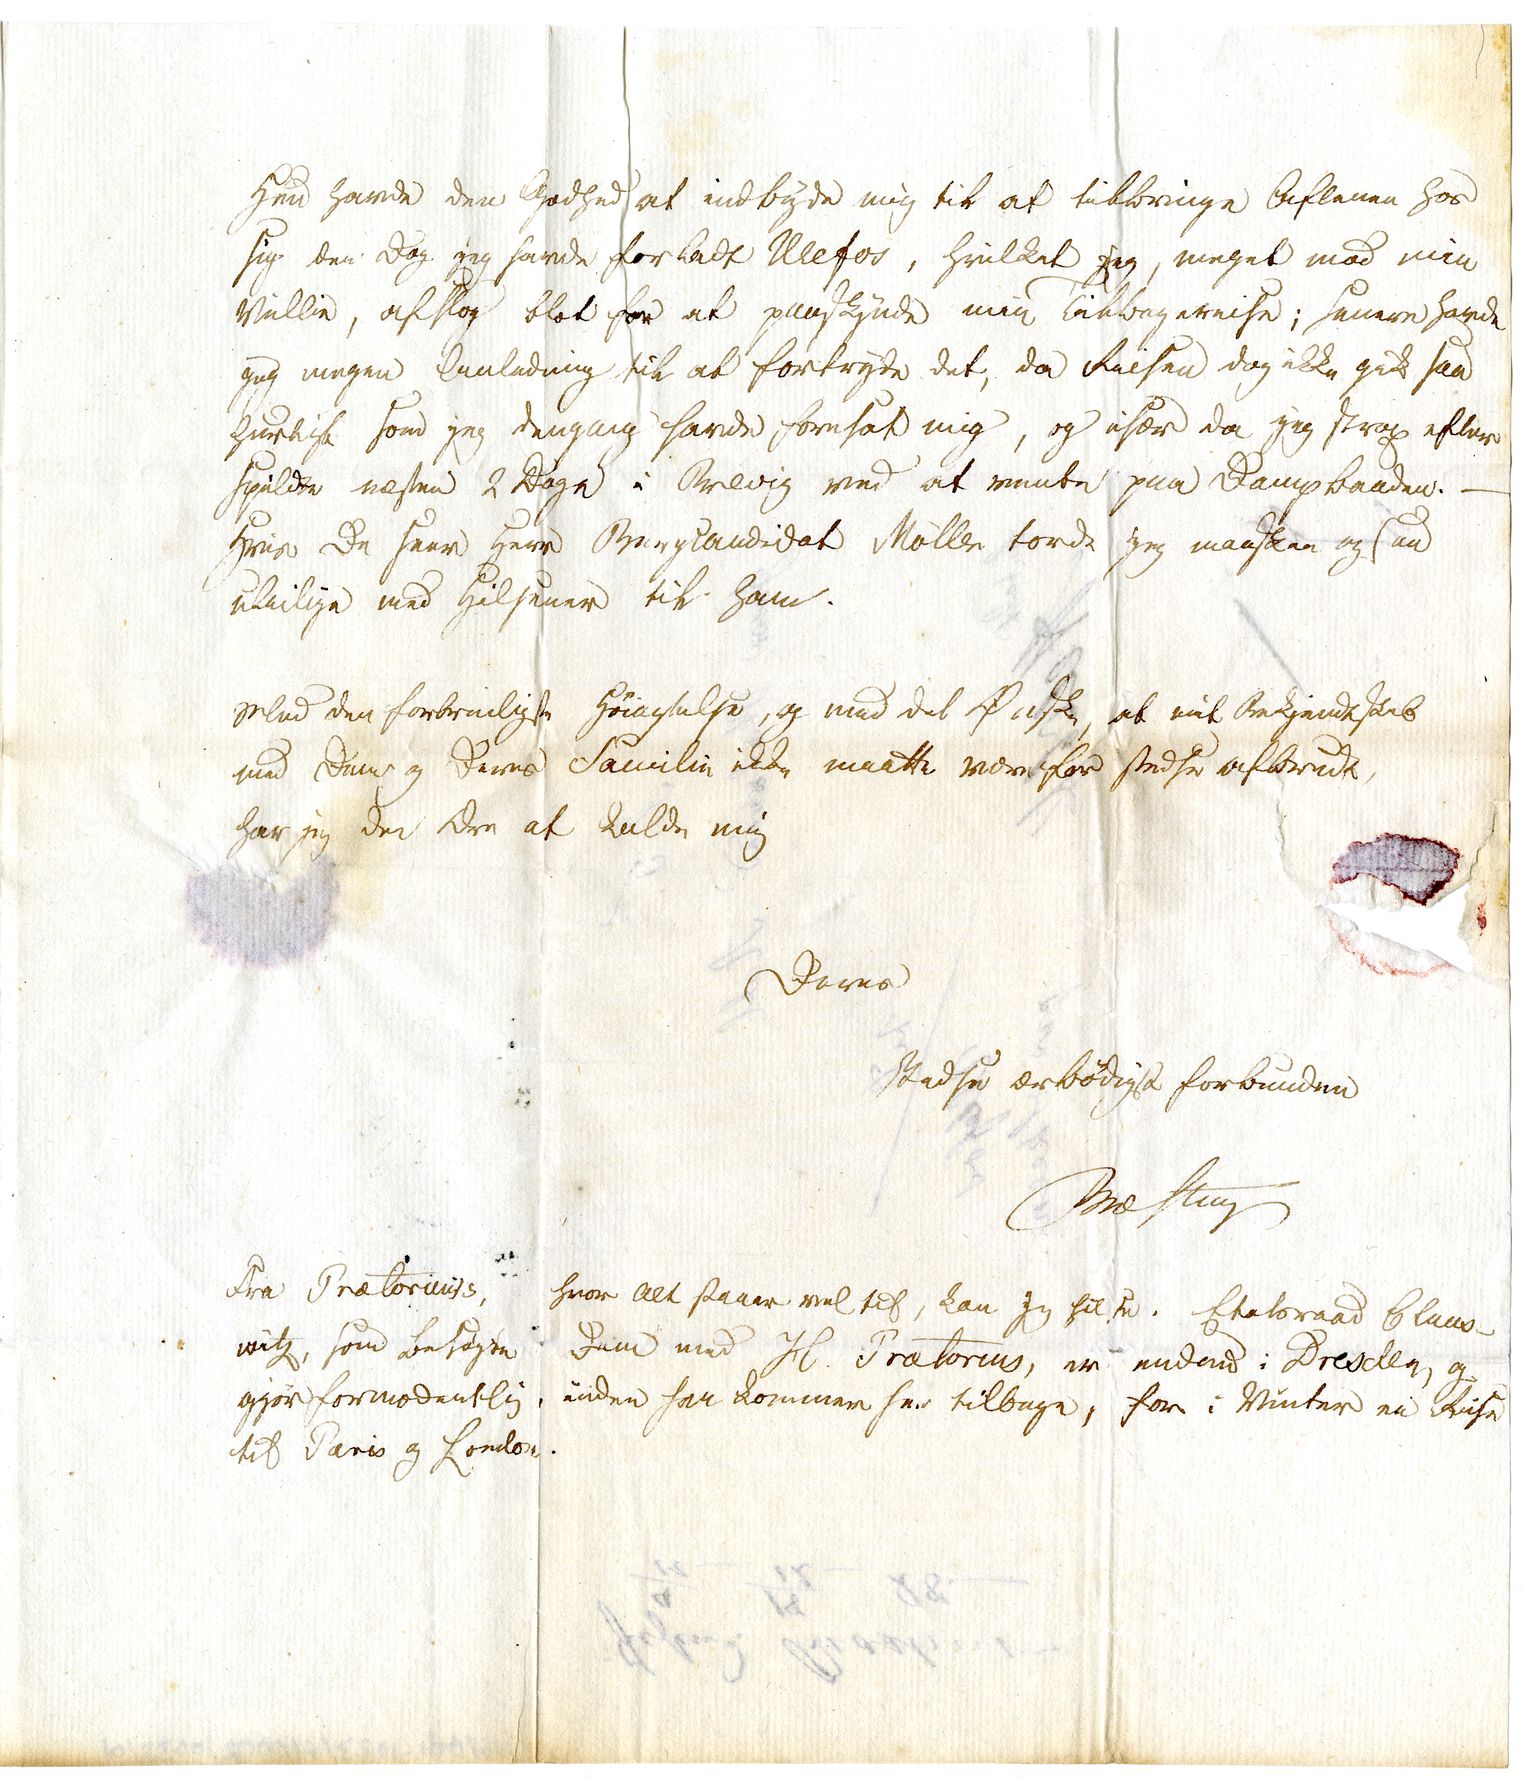 Hun havde den Godhed at indbyde mig til at tilbringe Aftenen hos
sig den Dag jeg havde forladt Ulefos, hvilket jeg, meget mod min
Villie, afslog blot for at paaskynde min Tilbagereise; senere havde
jeg megen Anledning til at fortryde det, da Reisen dog ikke gik saa
hurtigt som jeg dengang havde foresat mig, og især da jeg strax efter
spildte næsten 2 Dage i Brevig ved at vente paa Dampbaaden. —
Hvis De seer Herr Bergcandidat Møller torde jeg maaskee ogsaa
uleilige med Hilsener til ham.
Med den fortrinligste Høiagtelse, og med det Ønske, at mit Bekjendtskab
med Dem og Deres Familie ikke maatte være for stedse afbrudt,
har jeg den Ære at kalde mig
Deres
stedse ærbødigst forbunden
Fra Prætorius's, hvor Alt staaer vel til, kan jeg hilse. Etatsraad Claus-
witz, som besøgte Dem med H. Prætorius, er endnu i Dresden, og
gjør formodentlig, inden han kommer her tilbage, for i Vinter en Reise
til Paris og London.